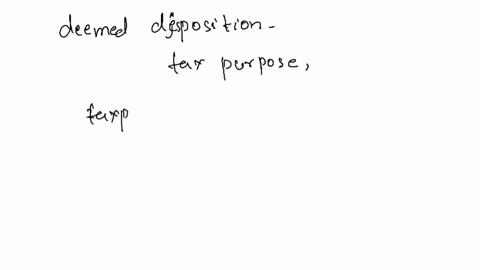 deemed disposition -
tax purpose,
taxp